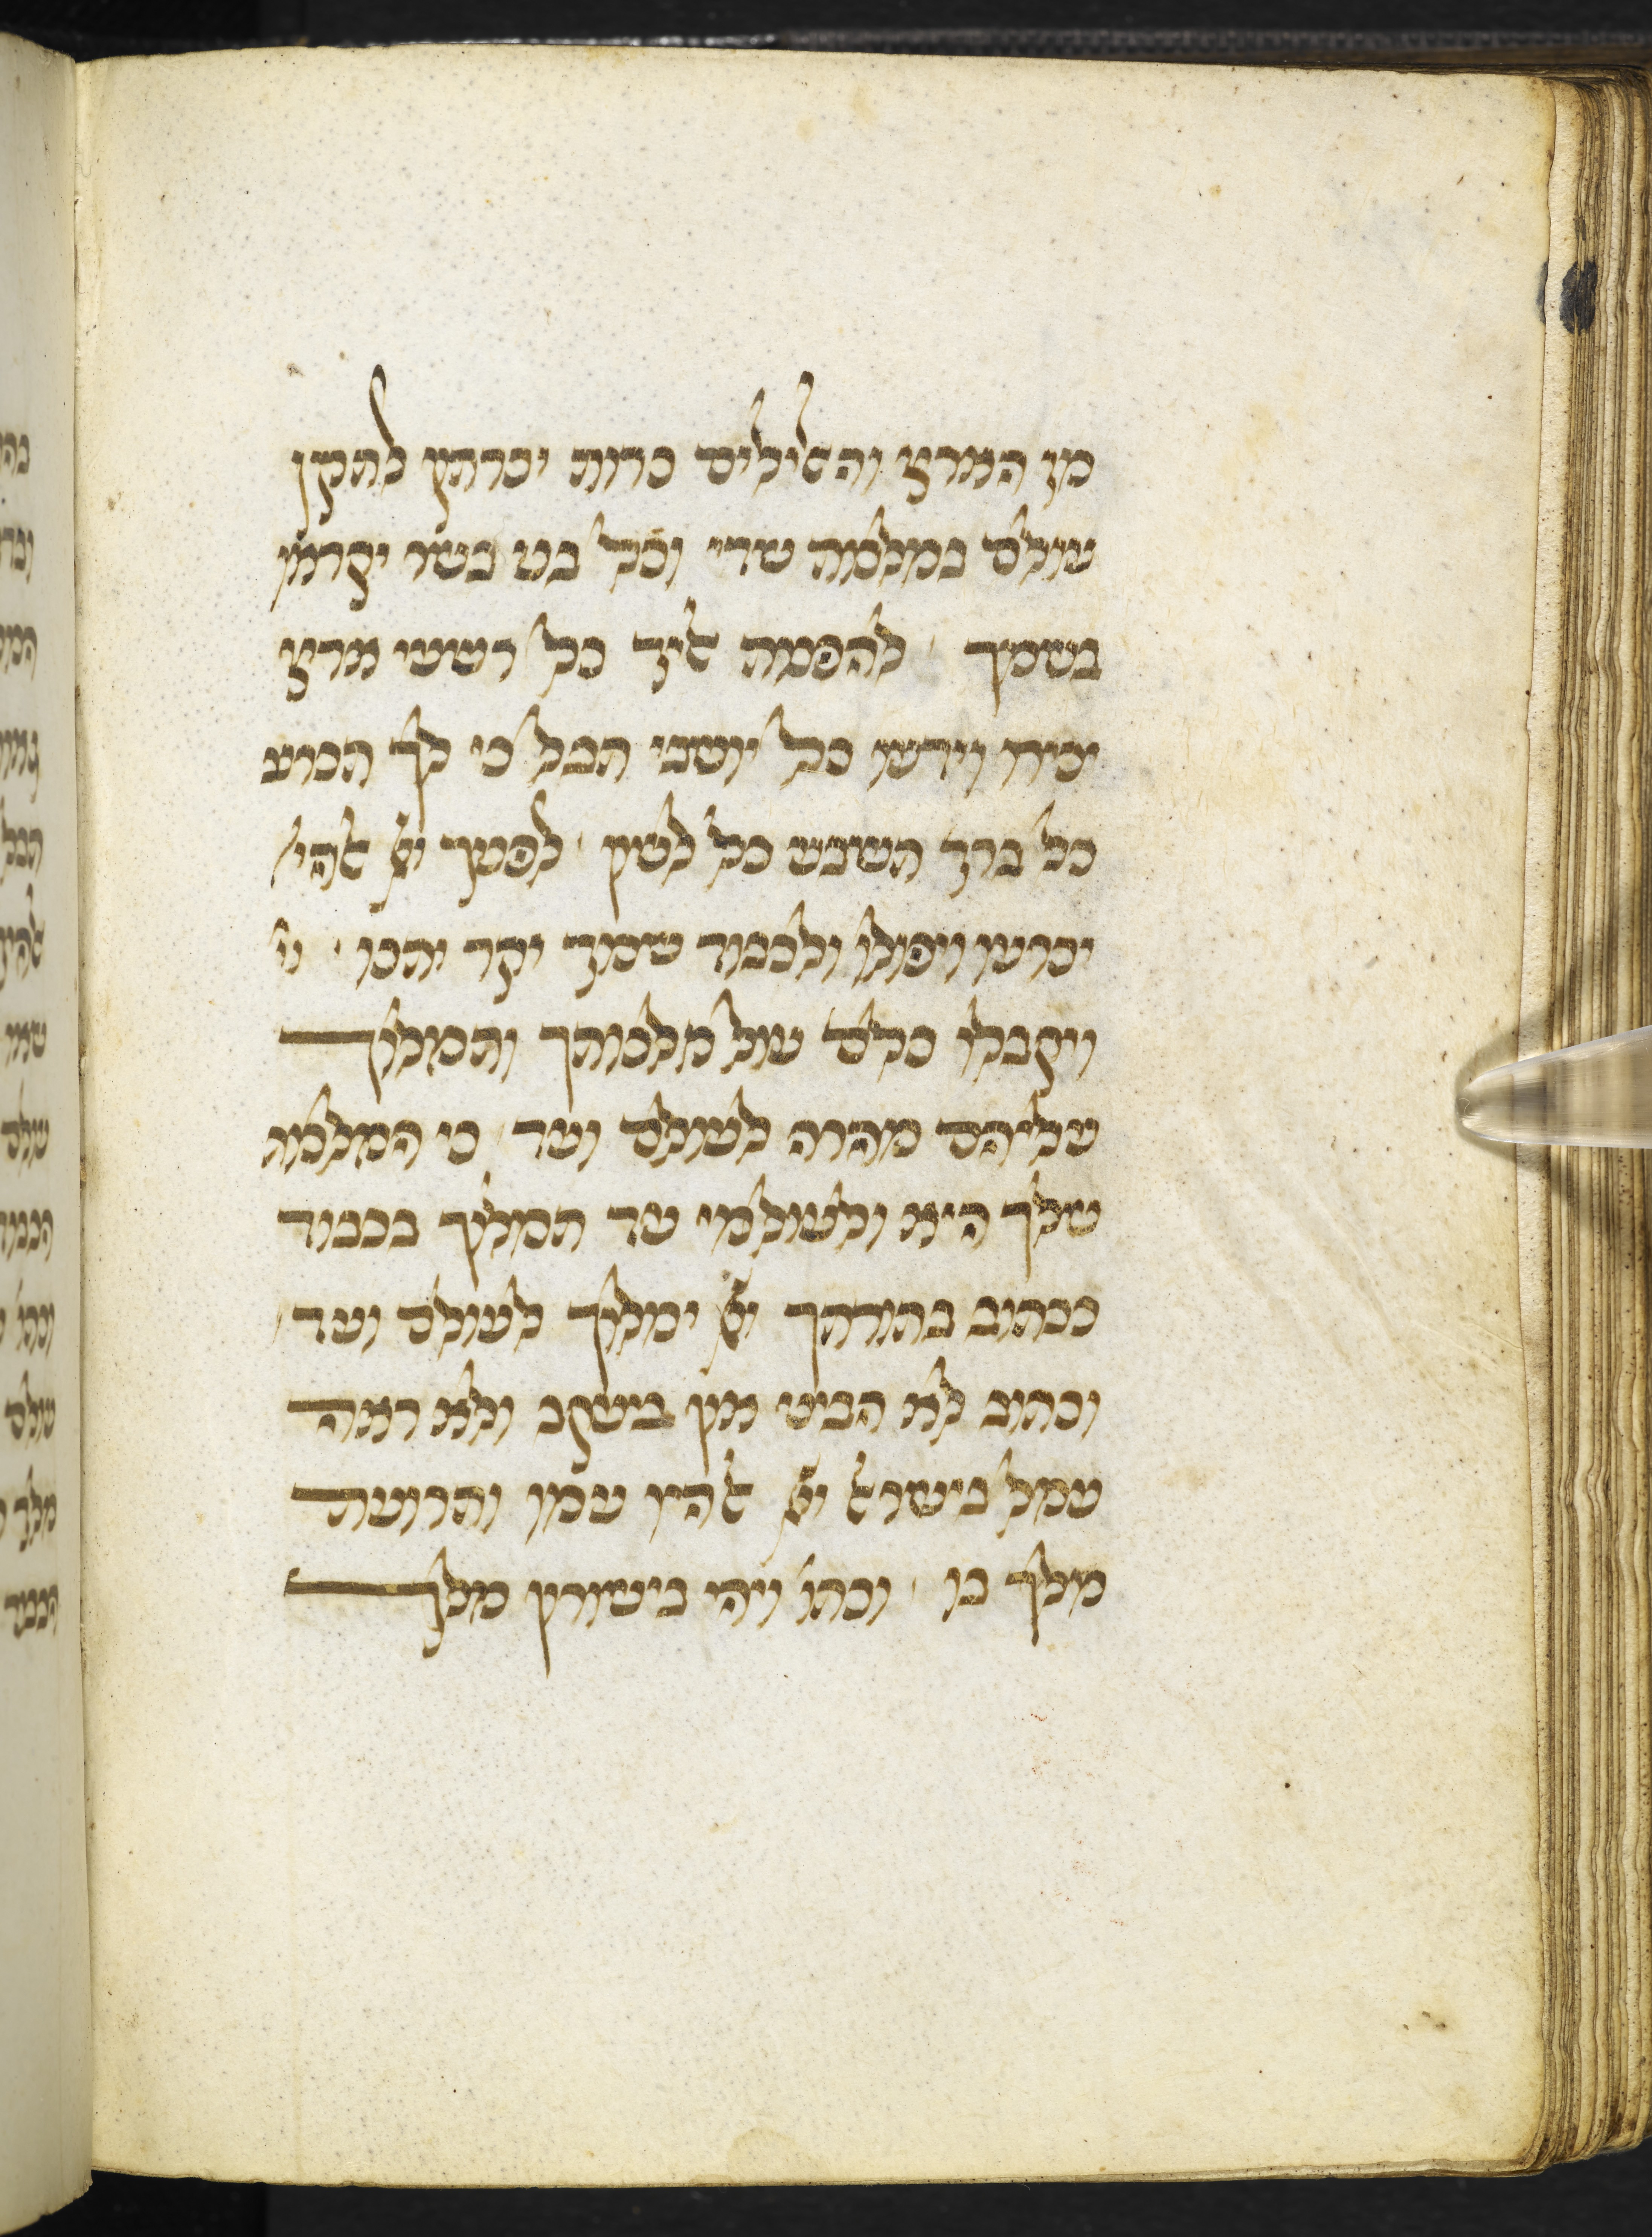 מן הארץ והאלילים כרות יכרתון לתקן
עולם במלכות שדי וכל בני בשר יקראו
בשמך להפנות אליך כל רשעי ארץ
יכירו וידעו כל יושבי תבל כי לך תכרע
כל ברך תשבע כל לשון לפניך יי אלהי'
יכרעו ויפולו ולכבוד שמך יקר יתנו וי
ויקבלו כלם עול מלכותך ותמלוך
עליהם מהרה לעולם ועד כי המלכות
שלך היא ולעולמי עד תמלוך בכבוד
ככתוב בתורתך יי ימלוך לעולם ועד
וכתוב לא הביט און ביעקב ולא ראה
עמל בישראל יי אלהיו עמו ותרועת
מלך בו וכתו' ויהי בישורון מלך